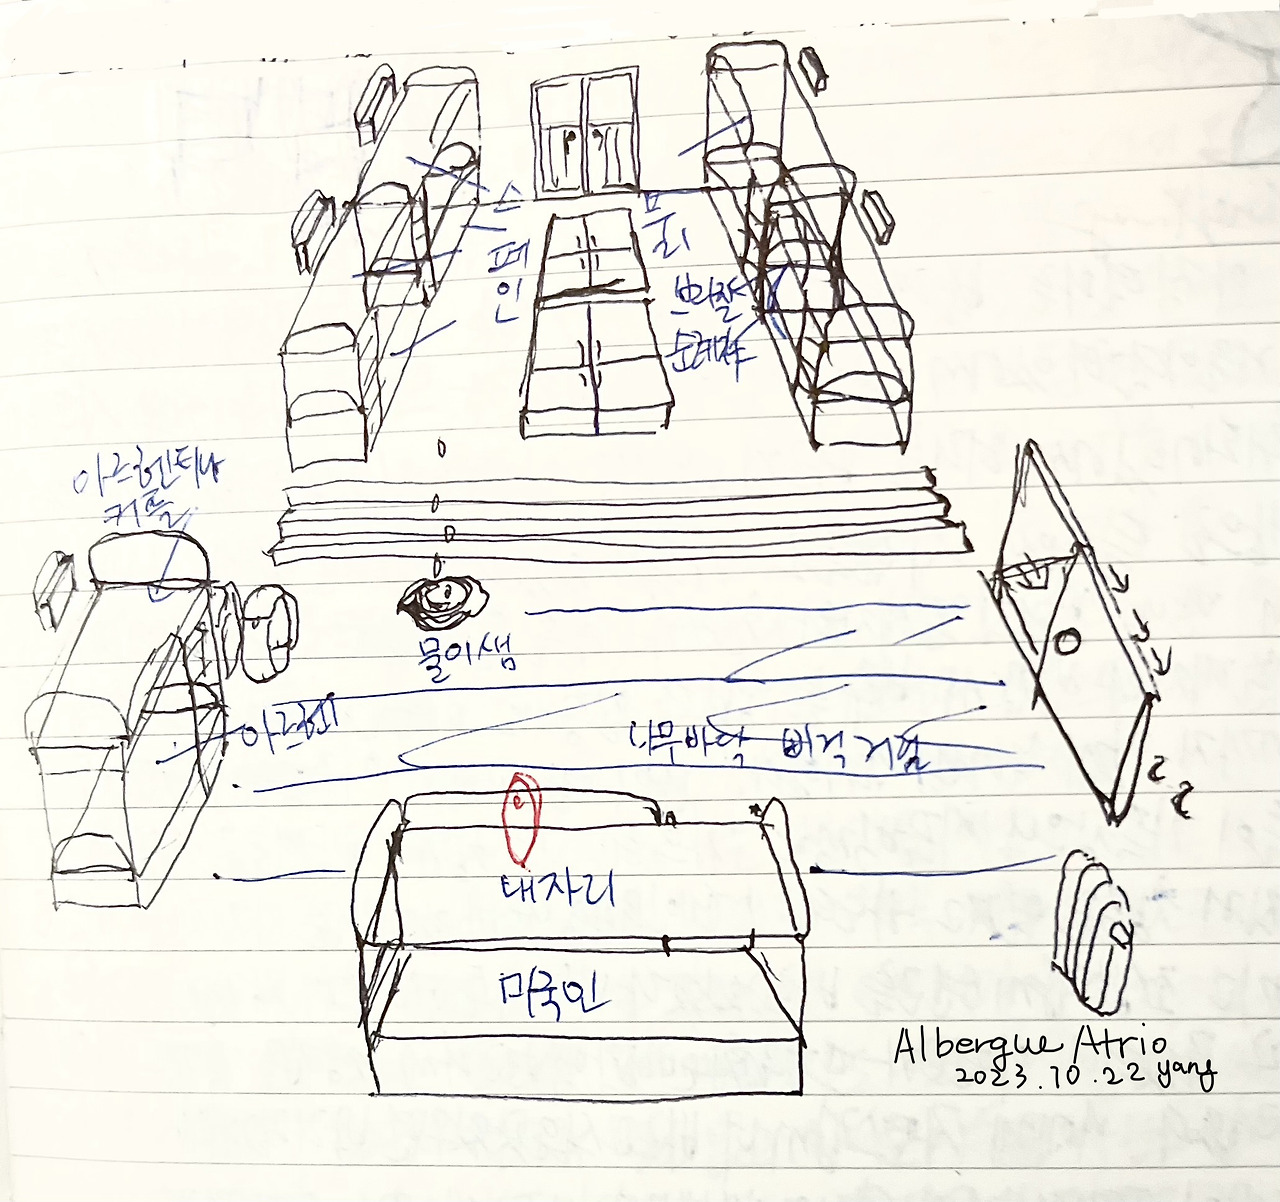 스페인
브라질
아르헨티나
커플
물이샘
아르헨
나무바닥 삐걱거림
내자리
미국인
Albergue Atrio
2023.10.22 yang